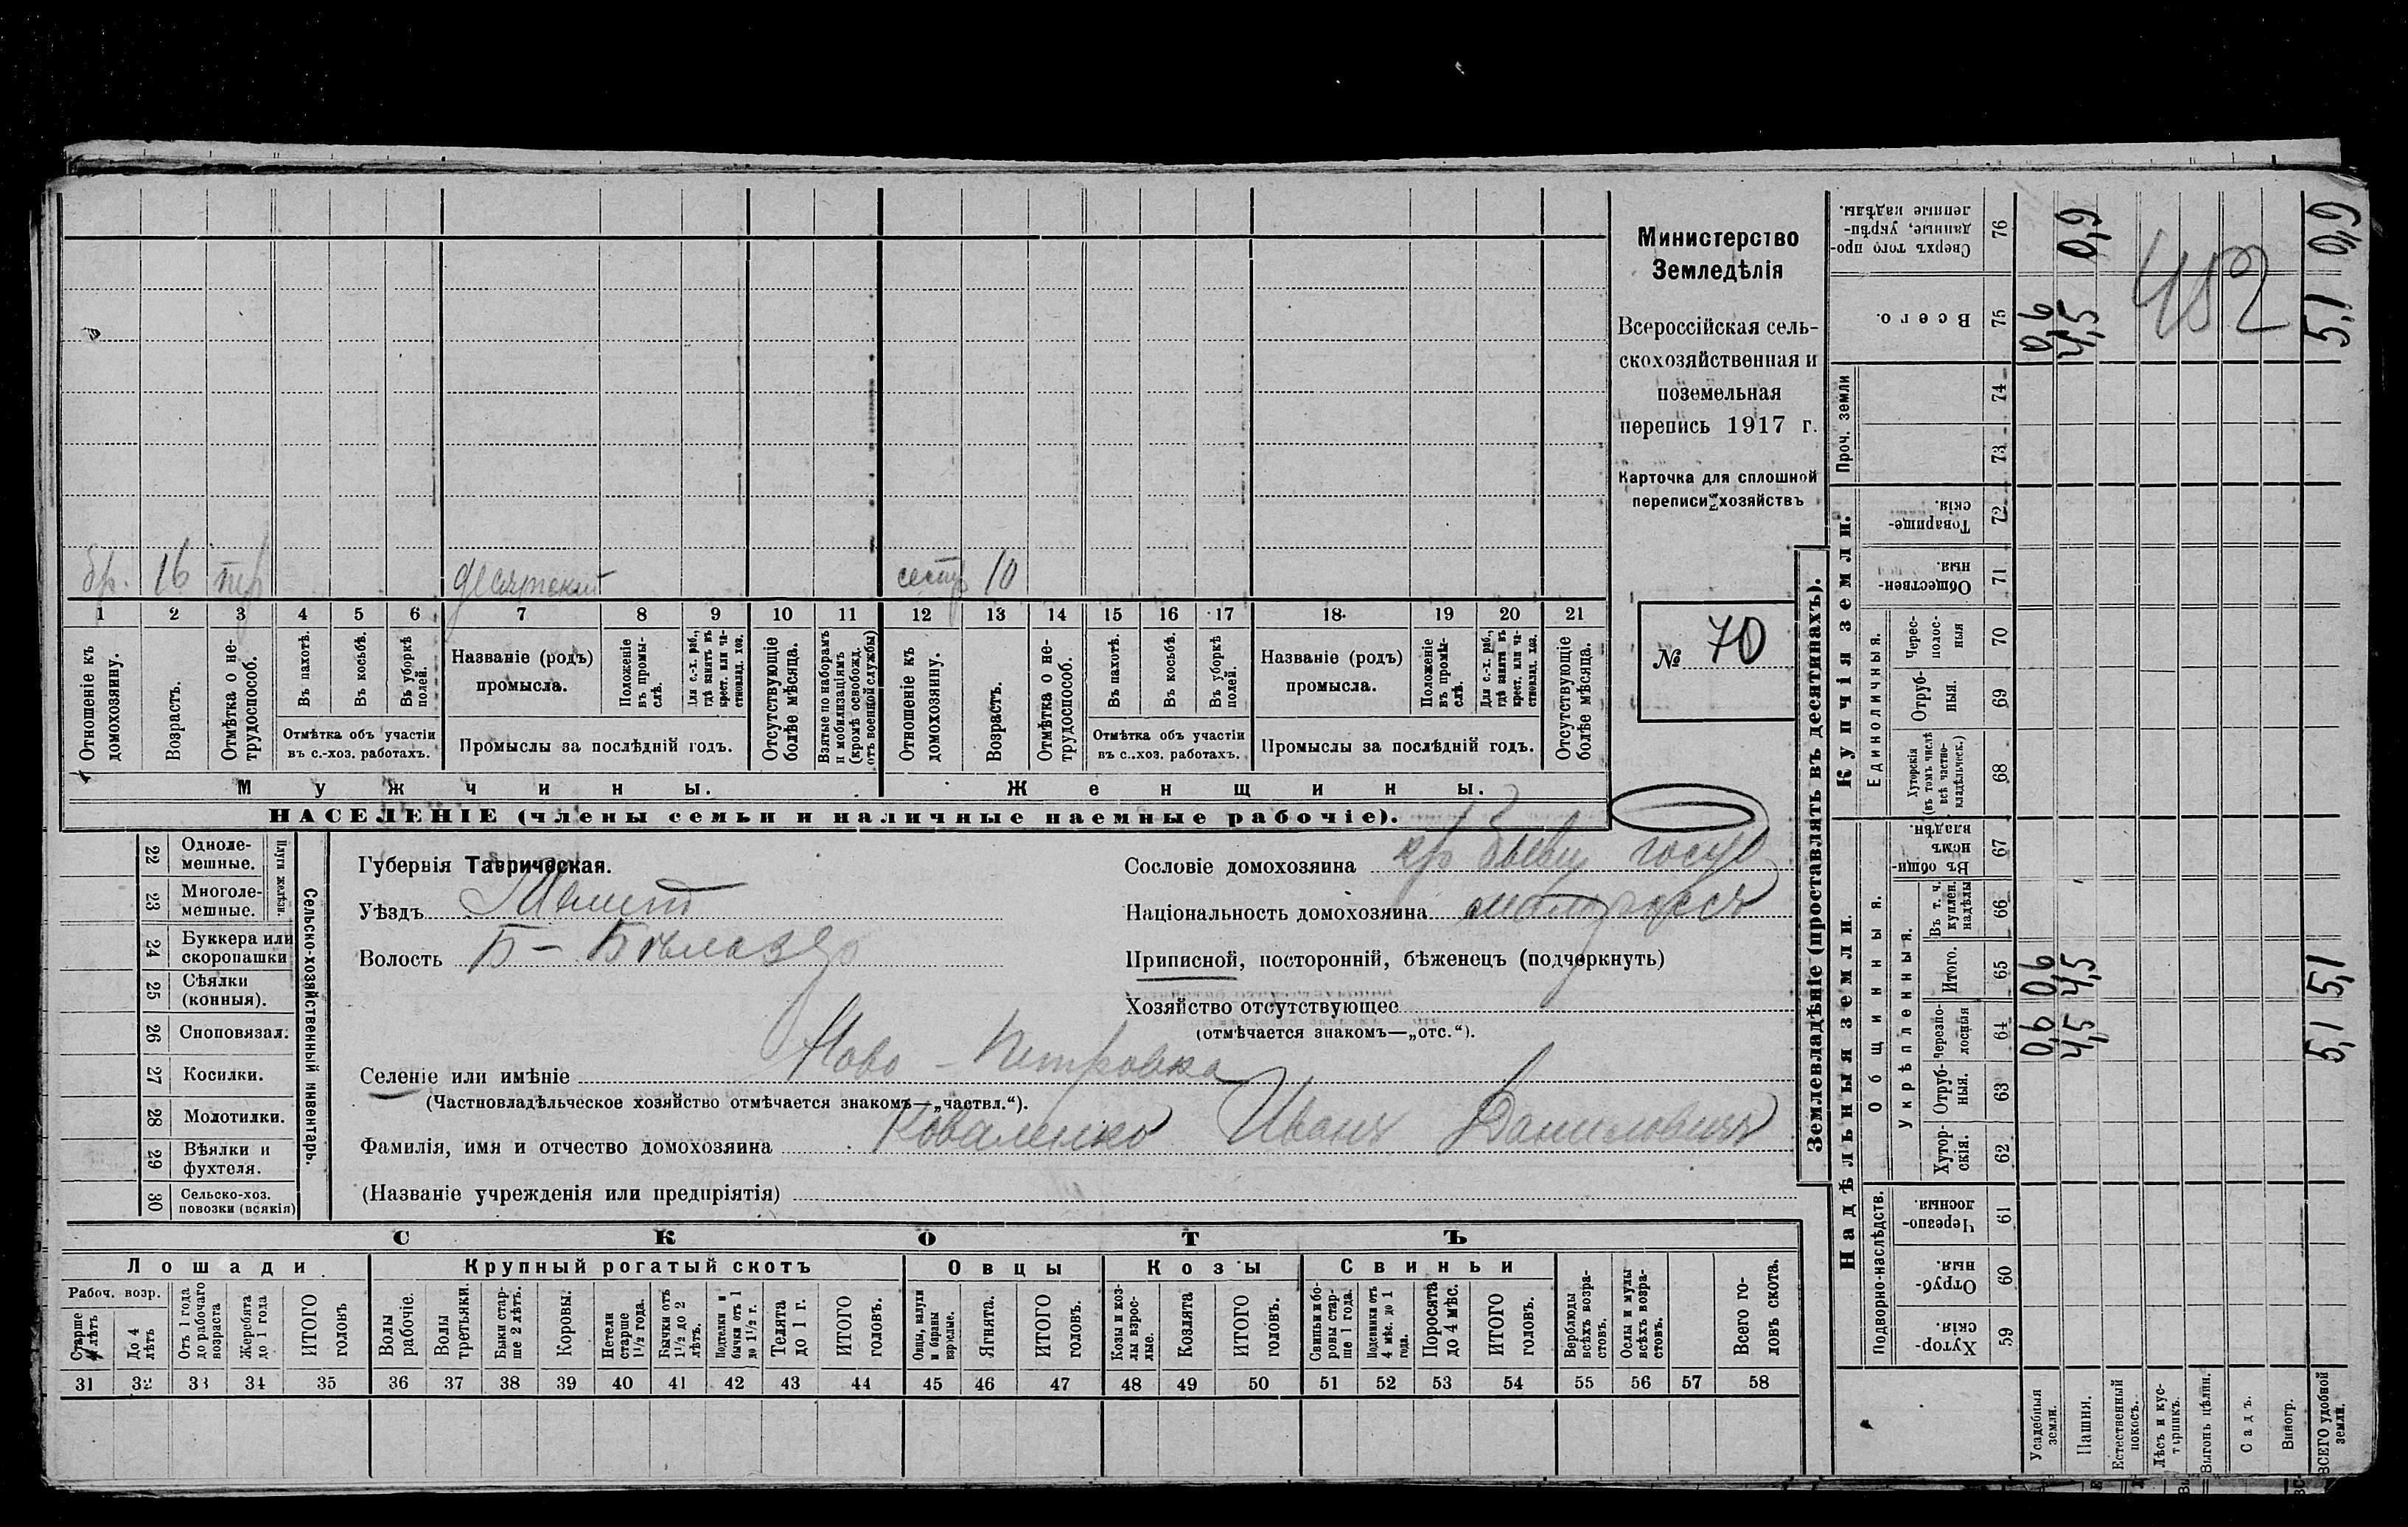 Министерство
Земледѣлія
Всероссійская сель-
скохозяйственная и
поземельная
перепись 1917 г.
Карточка для сплошной
переписи хозяйствъ
№ 70
бр. 16
сестр 10
1 2 3 4 5 6 7 8 9 10 11 12 13 14 15 16 17 18 19 20 21
Отношеніе къ домохозяину.
Возрастъ.
Отмѣтка о не-трудоспособ.
Въ пахотѣ.
Въ косьбѣ.
Въ уборкѣ полей.
Отмѣтка объ участіи
въ с.-хоз. работахъ.
Названіе (родъ)
промысла.
Положеніе въ промы-слѣ.
Для с.-х. раб., гдѣ занятъ въ крест. или ча-стновлад. хоз.
Промыслы за послѣдній годъ.
Отсутствующіе болѣе мѣсяца.
Взятые по наборамъ и мобилизаціямъ (кромѣ освобожд. отъ военной службы)
Отношеніе къ домохозяину.
Возрастъ.
Отмѣтка о не-трудоспособ.
Въ пахотѣ.
Въ косьбѣ.
Въ уборкѣ полей.
Отмѣтка объ участіи
въ с..хоз. работахъ.
Названіе (родъ)
промысла.
Положеніе въ промы-слѣ.
Для с.-х. раб., гдѣ занята въ крест. или ча-стновлад. хоз.
Промыслы за послѣдній годъ.
Отсутствующіе болѣе мѣсяца.
Мужчины.
Женщины.
НАСЕЛЕНІЕ (члены семьи и наличные наемные рабочіе).
22 Одноле-мешные.
23 Многоле-мешные.
Плуги желѣзн.
24 Буккера или скоропашки
25 Сѣялки (конныя).
26 Сноповязал.
27 Косилки.
28 Молотилки.
29 Вѣялки и фухтеля.
30 Сельско-хоз. повозки (всякія)
Сельско-хозяйственный инвентарь.
Губернія Таврическая.
Уѣздъ Мелит
Волость Б-Бѣлозер
Селеніе или имѣніе Ново-Петровка
(Частновладѣльческое хозяйство отмѣчается знакомъ—„частвл.“).
Фамилія, имя и отчество домохозяина Коваленко Иванъ Даниловичъ
(Названіе учрежденія или предпріятія)
Сословіе домохозяина кр бывш госуд
Національность домохозяина малороссъ
Приписной, посторонній, бѣженецъ (подчеркнуть)
Хозяйство отсутствующее
(отмѣчается знакомъ—„отс.“).
СКОТЪ
Лошади
Крупный рогатый скотъ
Овцы
Козы
Свиньи
Рабоч. возр.
Старше 4 лѣтъ
До 4 лѣтъ
Отъ 1 года до рабочаго возраста
Жеребята до 1 года
ИТОГО головъ
Волы рабочіе.
Волы третьяки.
Быки стар-ше 2 лѣтъ.
Коровы.
Нетели старше 1½ года.
Бычки отъ 1½ до 2 лѣтъ.
Подтелки и бычки отъ 1 до 1½ г.
Телята до 1 г.
ИТОГО головъ.
Овцы, валухи и бараны взрослые.
Ягнята.
ИТОГО головъ.
Козы и коз-лы взрос-лые.
Козлята
ИТОГО головъ.
Свиньи и бо-ровы стар-ше 1 года.
Подсвинки отъ 4 мѣс. до 1 года.
Поросята до 4 мѣс.
ИТОГО головъ.
Верблюды всѣхъ возра-стовъ.
Ослы и мулы всѣхъ возра-стовъ.
Всего го-ловъ скота.
31 32 33 34 35 36 37 38 39 40 41 42 43 44 45 46 47 48 49 50 51 52 53 54 55 56 57 58
Землевладѣніе (проставлять въ десятинахъ).
Надѣльныя земли.
Купчія земли.
Проч. земли
Подворно-наслѣдств.
Общинныя.
Укрѣпленныя.
Единоличныя.
Хутор-скія. 59
Отруб-ныя. 60
Черезпо-лосныя 61
Хутор-скія. 62
Отруб-ныя. 63
Черезпо-лосныя 64
Итого. 65
Въ т. ч. куплен. надѣлы 66
Въ общин-номъ владѣн. 67
Хуторскія (въ томъ числѣ всѣ частно-владѣльческ.) 68
Отруб-ныя. 69
Черес-полос-ныя 70
Обществен-ныя. 71
Товарище-скія. 72
73
74
Всего. 75
Сверхъ того про-данные, укрѣп-ленные надѣлы. 76
Усадебныя земли. 0,6 0,6 0,6
Пашня. 4,5 4,5 4,5 0,9
Естественный покосъ.
Лѣсъ и кус-тарникъ.
Выгонъ цѣлин.
Садъ.
Виногр.
ВСЕГО удобной земли. 5,1 5,1 5,1 0,9
452